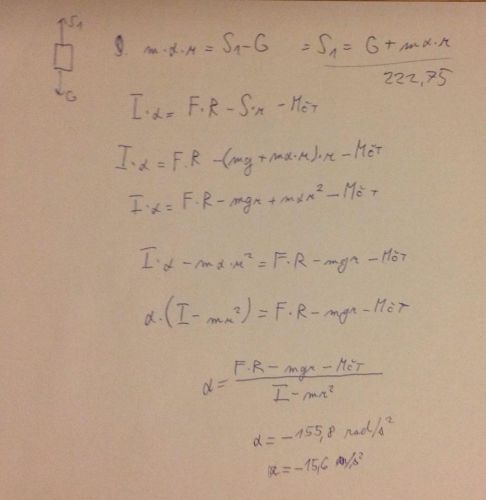 S₁
G
m·α·r = S₁-G = S₁ = G + mα·r
222,75
I·α = F·R - S·r - Mčτ
I·α = F·R - (mg + mα·r)·r - Mčτ
I·α = F·R - mgr + mαr² - Mčτ
I·α - mα·r² = F·R - mgr - Mčτ
α·(I - mr²) = F·R - mgr - Mčτ
α = F·R - mgr - Mčτ / I - mr²
α = -155,8 rad/s²
a = -15,6 m/s²